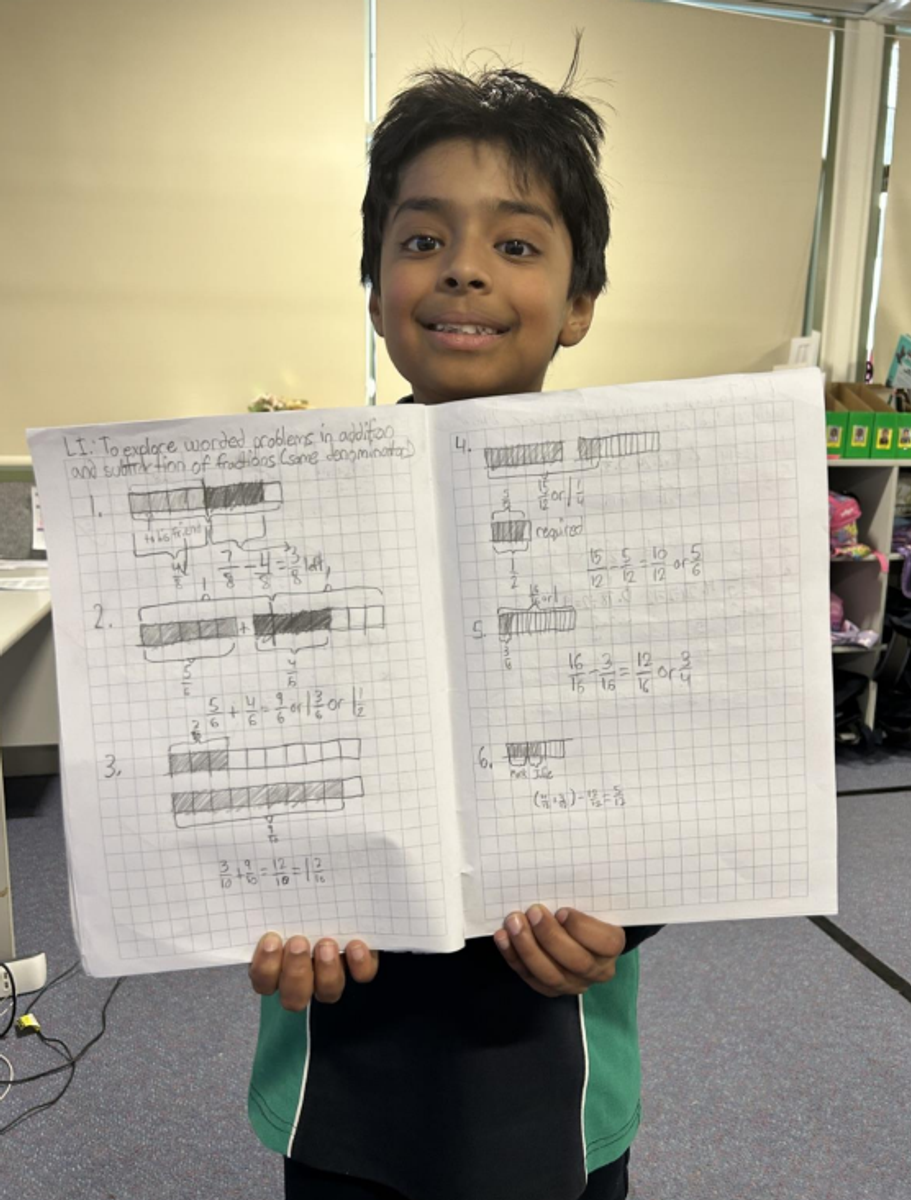 LI: To explore worded problems in addition
and subtraction of fractions (same denominator)
1.
to his friend
4/8
7/8 - 4/8 = 3/8 left
2.
1
+
5/6
4/6
5/6 + 4/6 = 9/6 or 1 3/6 or 1 1/2
3.
9/10
3/10 + 9/10 = 12/10 = 1 2/10
4.
15/12 or 1 1/4
required
1/2
15/12 - 5/12 = 10/12 or 5/6
5.
16/16 - 3/16 = 12/16 or 3/4
6.